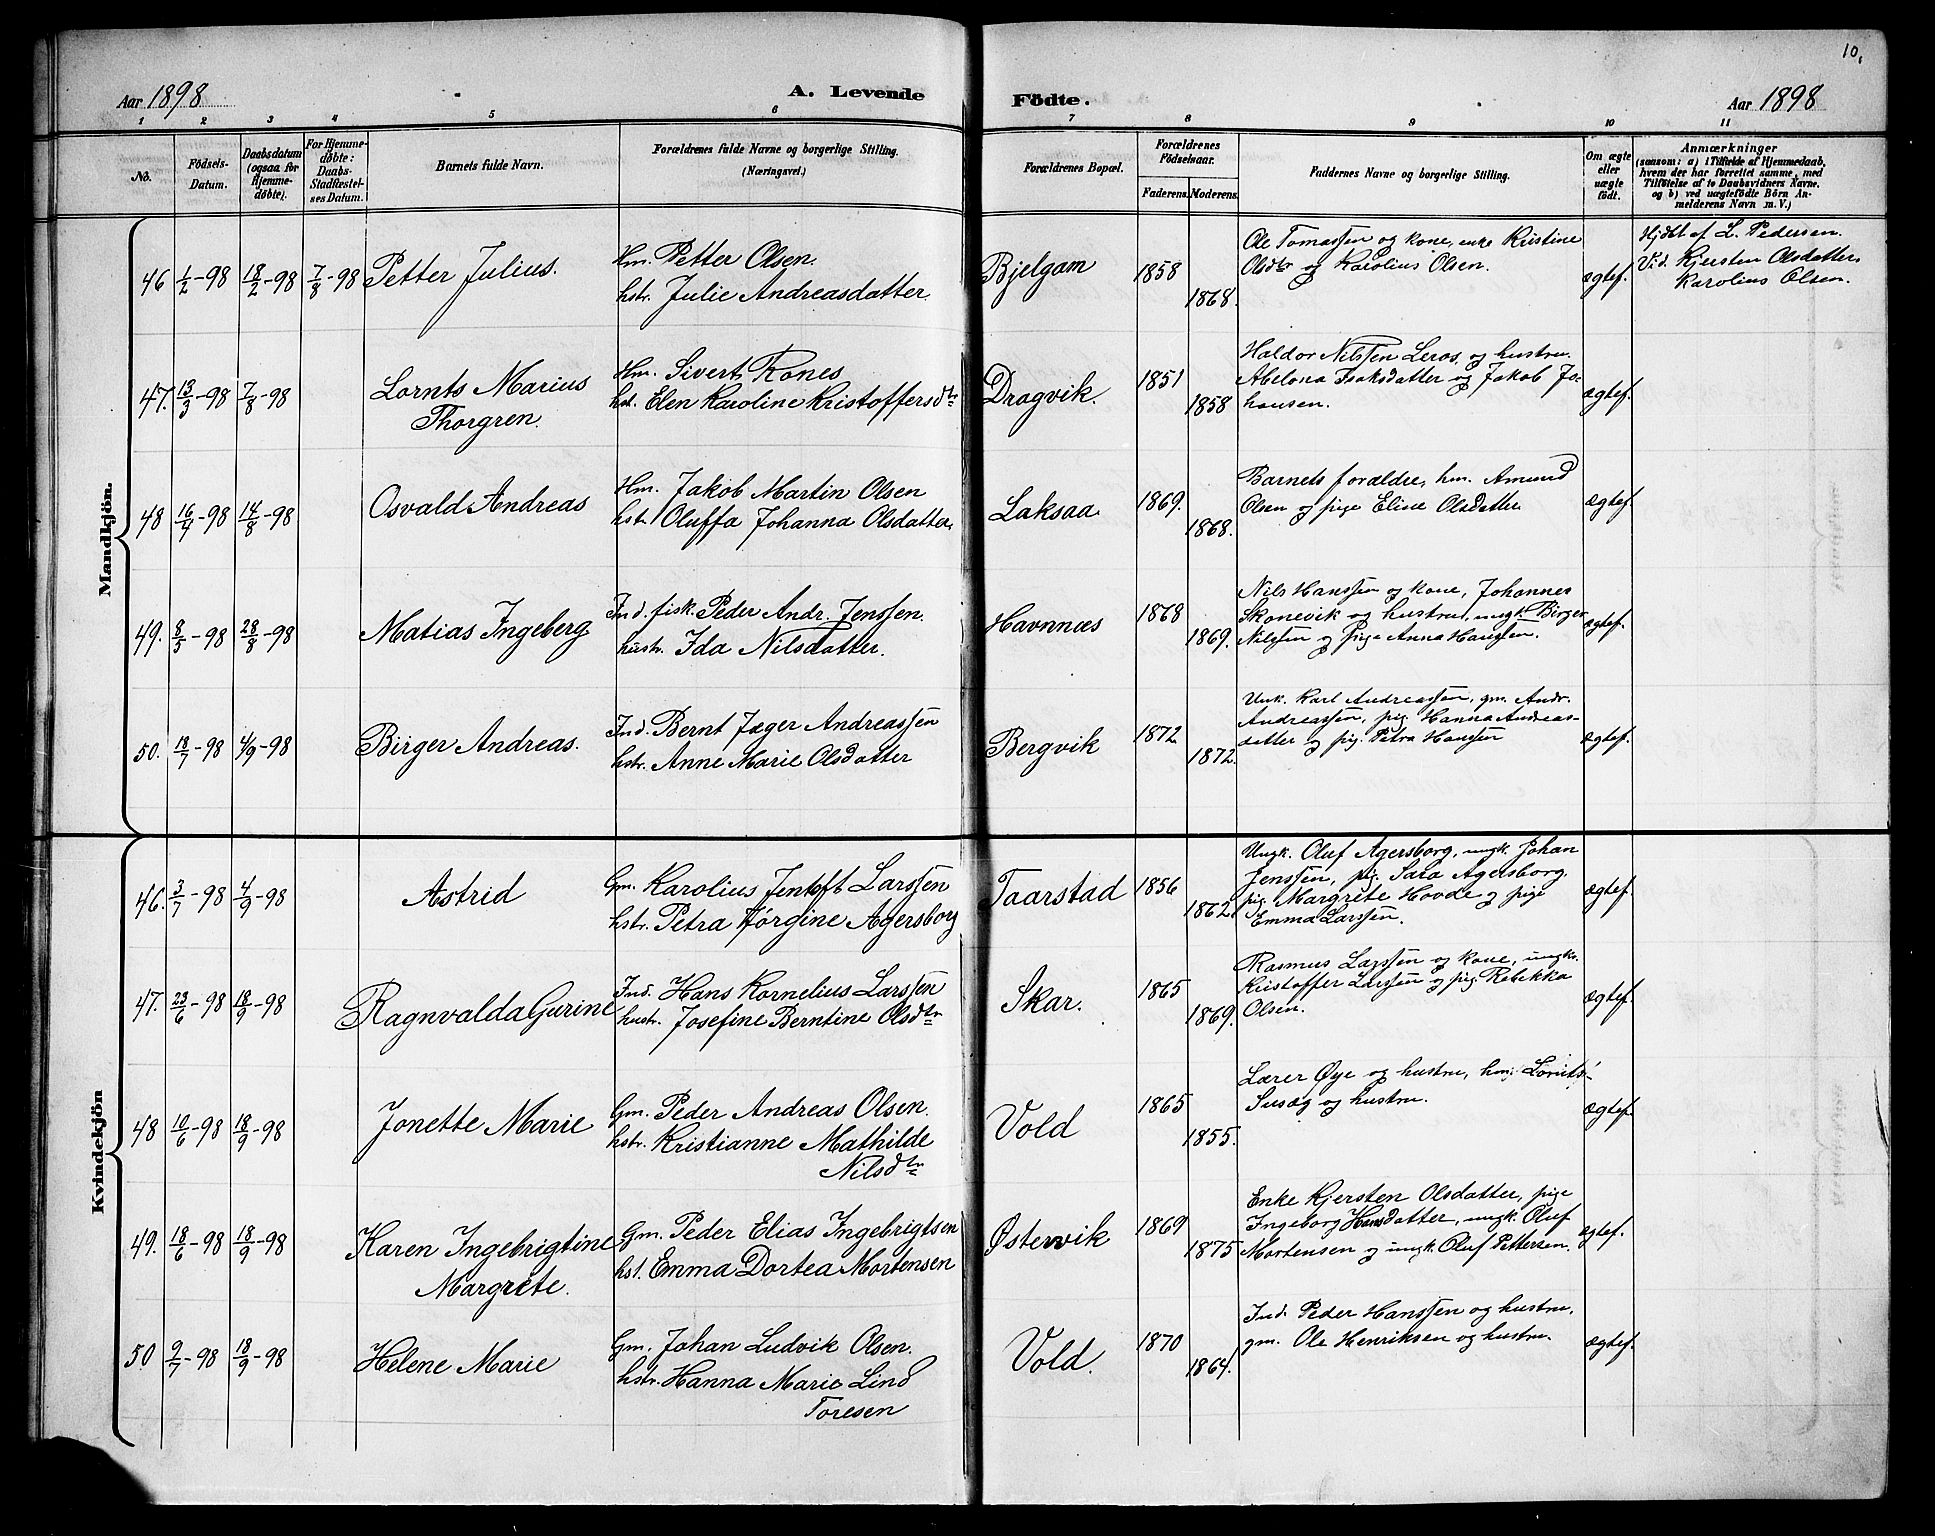 10.
Aar 1898
A. Levende
Födte.
Aar 1898
1 2 3 4 5 6 7 8 9 10 11
No.
Födsels-
Datum.
Daabsdatum
(ogsaa for
Hjemme-
døbte).
For Hjemme-
døbte:
Daabs-
Stadfæstel-
ses Datum.
Barnets fulde Navn.
Forældrenes fulde Navne og borgerlige Stilling.
(Næringsvei.)
Forældrenes Bopæl.
Forældrenes
Födselsaar.
Faderens.
Moderens.
Faddernes Navne og borgerlige Stilling.
Om ægte
eller
uægte
födt.
Anmærkninger
(saasom: a) i Tilfælde af Hjemmedaab,
hvem der har forrettet samme, med
Tilföielse af to Daabsvidners Navne.
og b) ved uægtefödte Börn An-
melderens Navn m. V.)
Mandkjön.
46 1/2-98 18/2-98 7/8-98 Petter Julius.
Hm. Petter Olsen.
hstr. Julie Andreasdatter
Bjelgam 1858 1868.
Ole Tomassen og kone, enke Kristine
Olsdtr og Karolius Olsen.
ægtef.
Hjdbt af L. Pedersen.
Vid. Kjersten Olsdatter,
Karolius Olsen.
47. 13/3-98 7/8-98 Lornts Marius
Thorgren.
Hm. Sivert Rones
hst. Elen Karoline Kristoffersdtr
Dragvik. 1851 1858
Haldor Nilssen Leros, og hustru.
Abelona Isaksdatter og Jakob Jo-
hansen.
ægtef.
48 16/4-98 14/8-98 Osvald Andreas
Hm. Jakob Martin Olsen
hstr. Oluffa Johanna Olsdatter
Laksaa 1869. 1868.
Barnets forældre, hm. Amund
Olsen og pige Eline Olsdatter
ægtef.
49. 8/5-98 28/8-98 Matias Ingeberg
Ind. fisk. Peder Andr. Jenssen.
hustr. Ida Nilsdatter.
Havnnæs 1868 1869.
Nils Hanssen og kone, Johannes
Skonevik og hustru, ungk. Birger
Nilssen og pige Anna Hanssen.
ægtef.
50. 18/7-98 4/9-98 Birger Andreas.
Ind. Bernt Jæger Andreassen
hstr. Anne Marie Olsdatter
Bergvik 1872 1872.
Unk. Karl Andreassen, gm. Andr.
Andreassen, pig. Hanna Andreas-
datter og pig. Petra Hansen
ægtef.
Kvindekjön
46. 3/7-98 4/9-98 Astrid
Gm. Karolius Jentoft Larssen
hstr. Petra Jørgine Agersborg
Taarstad 1856 1862.
Ungk. Oluf Agersborg, ungk. Johan
Jenssen, pig. Sara Agersborg,
pig. Margrete Hovde og pige
Emma Larssen.
ægtef.
47. 23/6-98 18/9-98 Ragnvalda Gurine
Ind. Hans Kornelius Larssen
hustr. Josefine Berntine Olsdtr
Skar. 1865 1869.
Rasmus Larssen og kone, ungk.
Kristoffer Larssen og pig. Rebekka
Olsen.
ægtef.
48 10/6-98 18/9-98 Jonette Marie
Gm. Peder Andreas Olsen.
hstr. Kristianne Mathilde
Nilsdtr
Vold 1865 1855.
Lærer Øye og hustru, hm.
og hustru.
ægtef.
49. 18/6-98 18/9-98 Karen Ingebrigtine
Margrete.
Gm. Peder Elias Ingebrigtsen
hst. Emma Dortea Mortensen
Østervik 1869 1875
Enke Kjersten Olsdatter, pige
Ingeborg Hansdatter, ungk. Oluf
Mortensen og ungk. Oluf Pettersen.
ægtef.
50 9/7-98 18/9-98 Helene Marie
Gm. Johan Ludvik Olsen.
hstr. Hanna Marie Lind
Toresen
Vold. 1870 1864.
Ind. Peder Hanssen og hustru,
gm. Ole Henriksen og hustru.
ægtef.